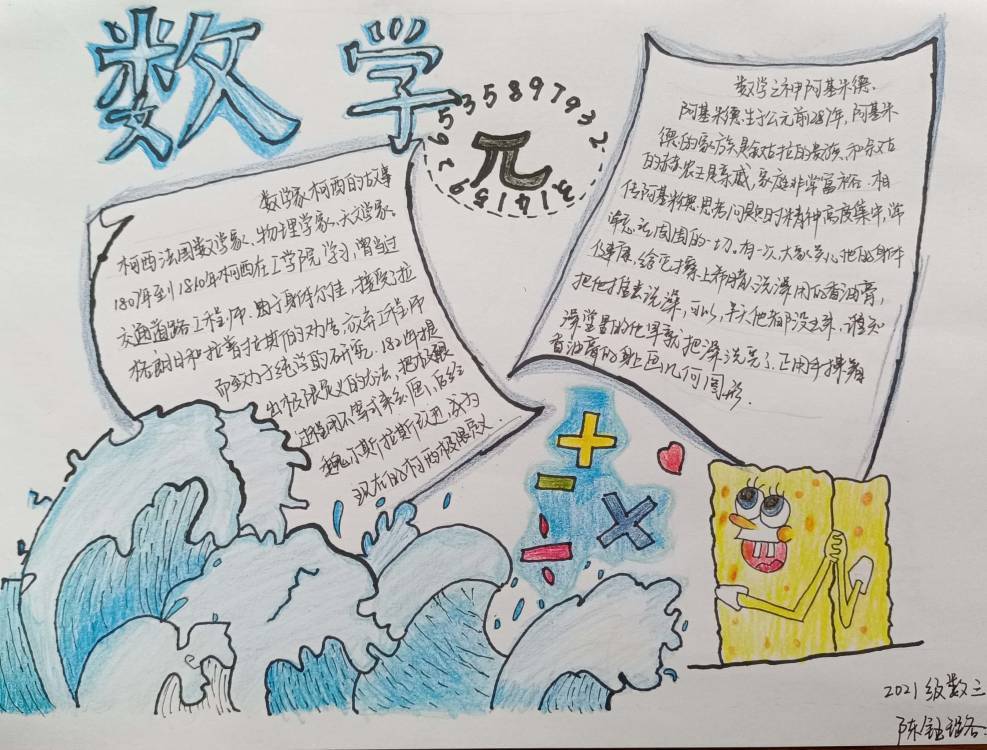 数学
π
31415926535897932
数学家柯西的故事
柯西法国数学家、物理学家、天文学家。
1807年到1810年柯西在工学院学习,曾当过
交通道路工程师.由于身体欠佳,接受拉
格朗日和拉普拉斯的劝告,放弃工程师
而致力于纯学的研究.1821年提
出极限定义的方法,把极限
过程用不等式来刻画,后经
魏尔斯拉斯改进,成为
现在的柯西极限定义.
数学之神阿基米德.
阿基米德生于公元前287年,阿基米
德的家族是叙古拉的贵族,和叙古
的赫农王是亲戚,家庭非常富裕.相
传阿基米德思考问题时精神高度集中,浑
忘记周围的一切.有一次,大家关心他的身体
健康,给它擦上希腊人洗澡用的香油膏,
把他推去洗澡,可以,半天他都没出来,谁知
澡堂里的他早就把澡洗完了.正用手操着
香油膏的身上画几何图形.
+
-
×
÷
2021级数三
陈